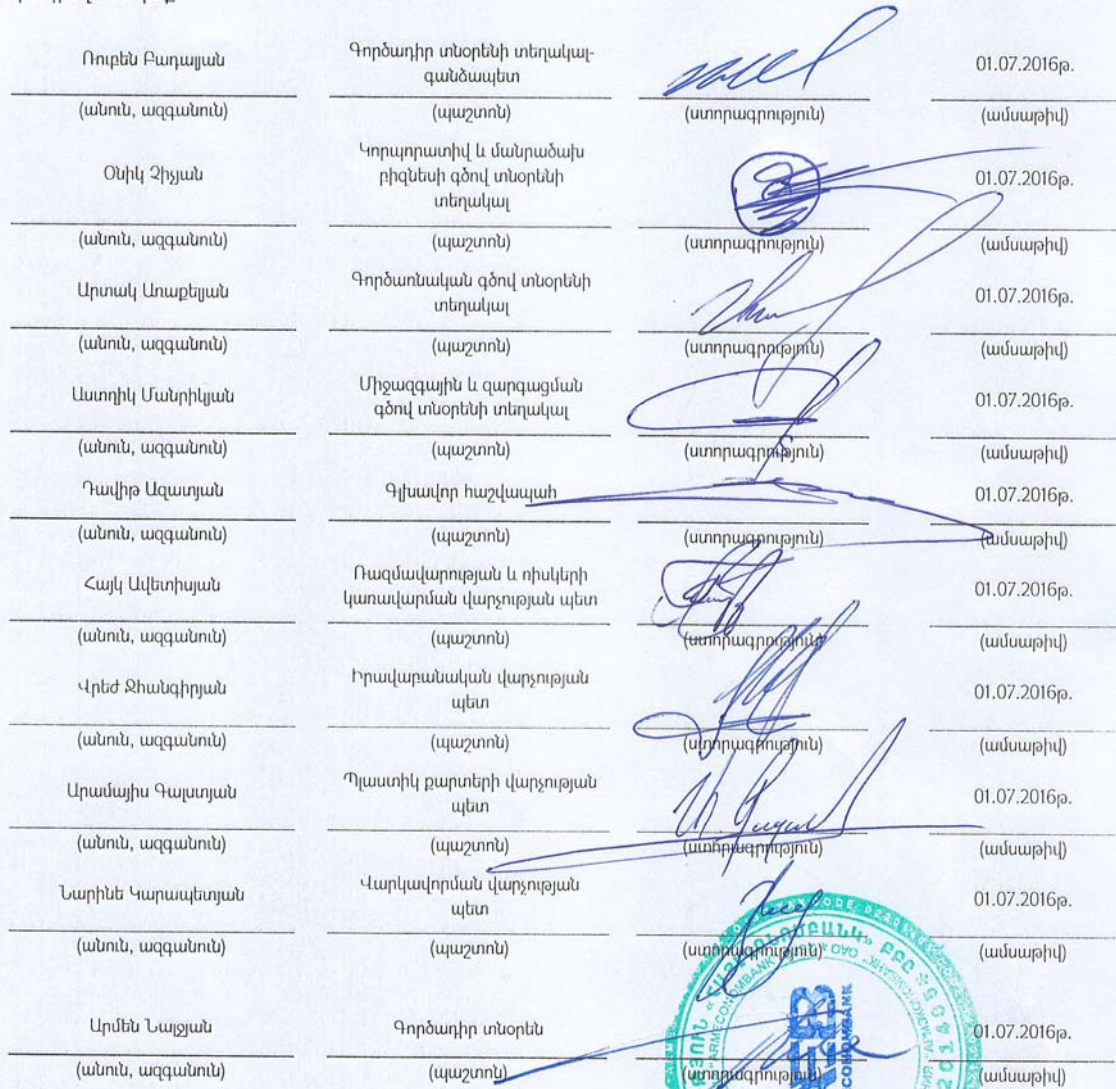 Ռուբեն Բադալյան Գործադիր տնօրենի տեղակալ- 01.07.2016թ.
գանձապետ
(անուն, ազգանուն) (պաշտոն) (ստորագրություն) (ամսաթիվ)
Օնիկ Չիչյան Կորպորատիվ և մանրածախ 01.07.2016թ.
բիզնեսի գծով տնօրենի
տեղակալ
(անուն, ազգանուն) (պաշտոն) (ստորագրություն) (ամսաթիվ)
Արտակ Առաքելյան Գործառնական գծով տնօրենի 01.07.2016թ.
տեղակալ
(անուն, ազգանուն) (պաշտոն) (ստորագրություն) (ամսաթիվ)
Աստղիկ Մանրիկյան Միջազգային և զարգացման 01.07.2016թ.
գծով տնօրենի տեղակալ
(անուն, ազգանուն) (պաշտոն) (ստորագրություն) (ամսաթիվ)
Դավիթ Ազատյան Գլխավոր հաշվապահ 01.07.2016թ.
(անուն, ազգանուն) (պաշտոն) (ստորագրություն) (ամսաթիվ)
Հայկ Ավետիսյան Ռազմավարության և ռիսկերի 01.07.2016թ.
կառավարման վարչության պետ
(անուն, ազգանուն) (պաշտոն) (ստորագրություն) (ամսաթիվ)
Վրեժ Ջհանգիրյան Իրավաբանական վարչության 01.07.2016թ.
պետ
(անուն, ազգանուն) (պաշտոն) (ստորագրություն) (ամսաթիվ)
Արամայիս Գալստյան Պլաստիկ քարտերի վարչության 01.07.2016թ.
պետ
(անուն, ազգանուն) (պաշտոն) (ստորագրություն) (ամսաթիվ)
Նարինե Կարապետյան Վարկավորման վարչության 01.07.2016թ.
պետ
(անուն, ազգանուն) (պաշտոն) (ստորագրություն) (ամսաթիվ)
Արմեն Նալջյան Գործադիր տնօրեն 01.07.2016թ.
(անուն, ազգանուն) (պաշտոն) (ստորագրություն) (ամսաթիվ)